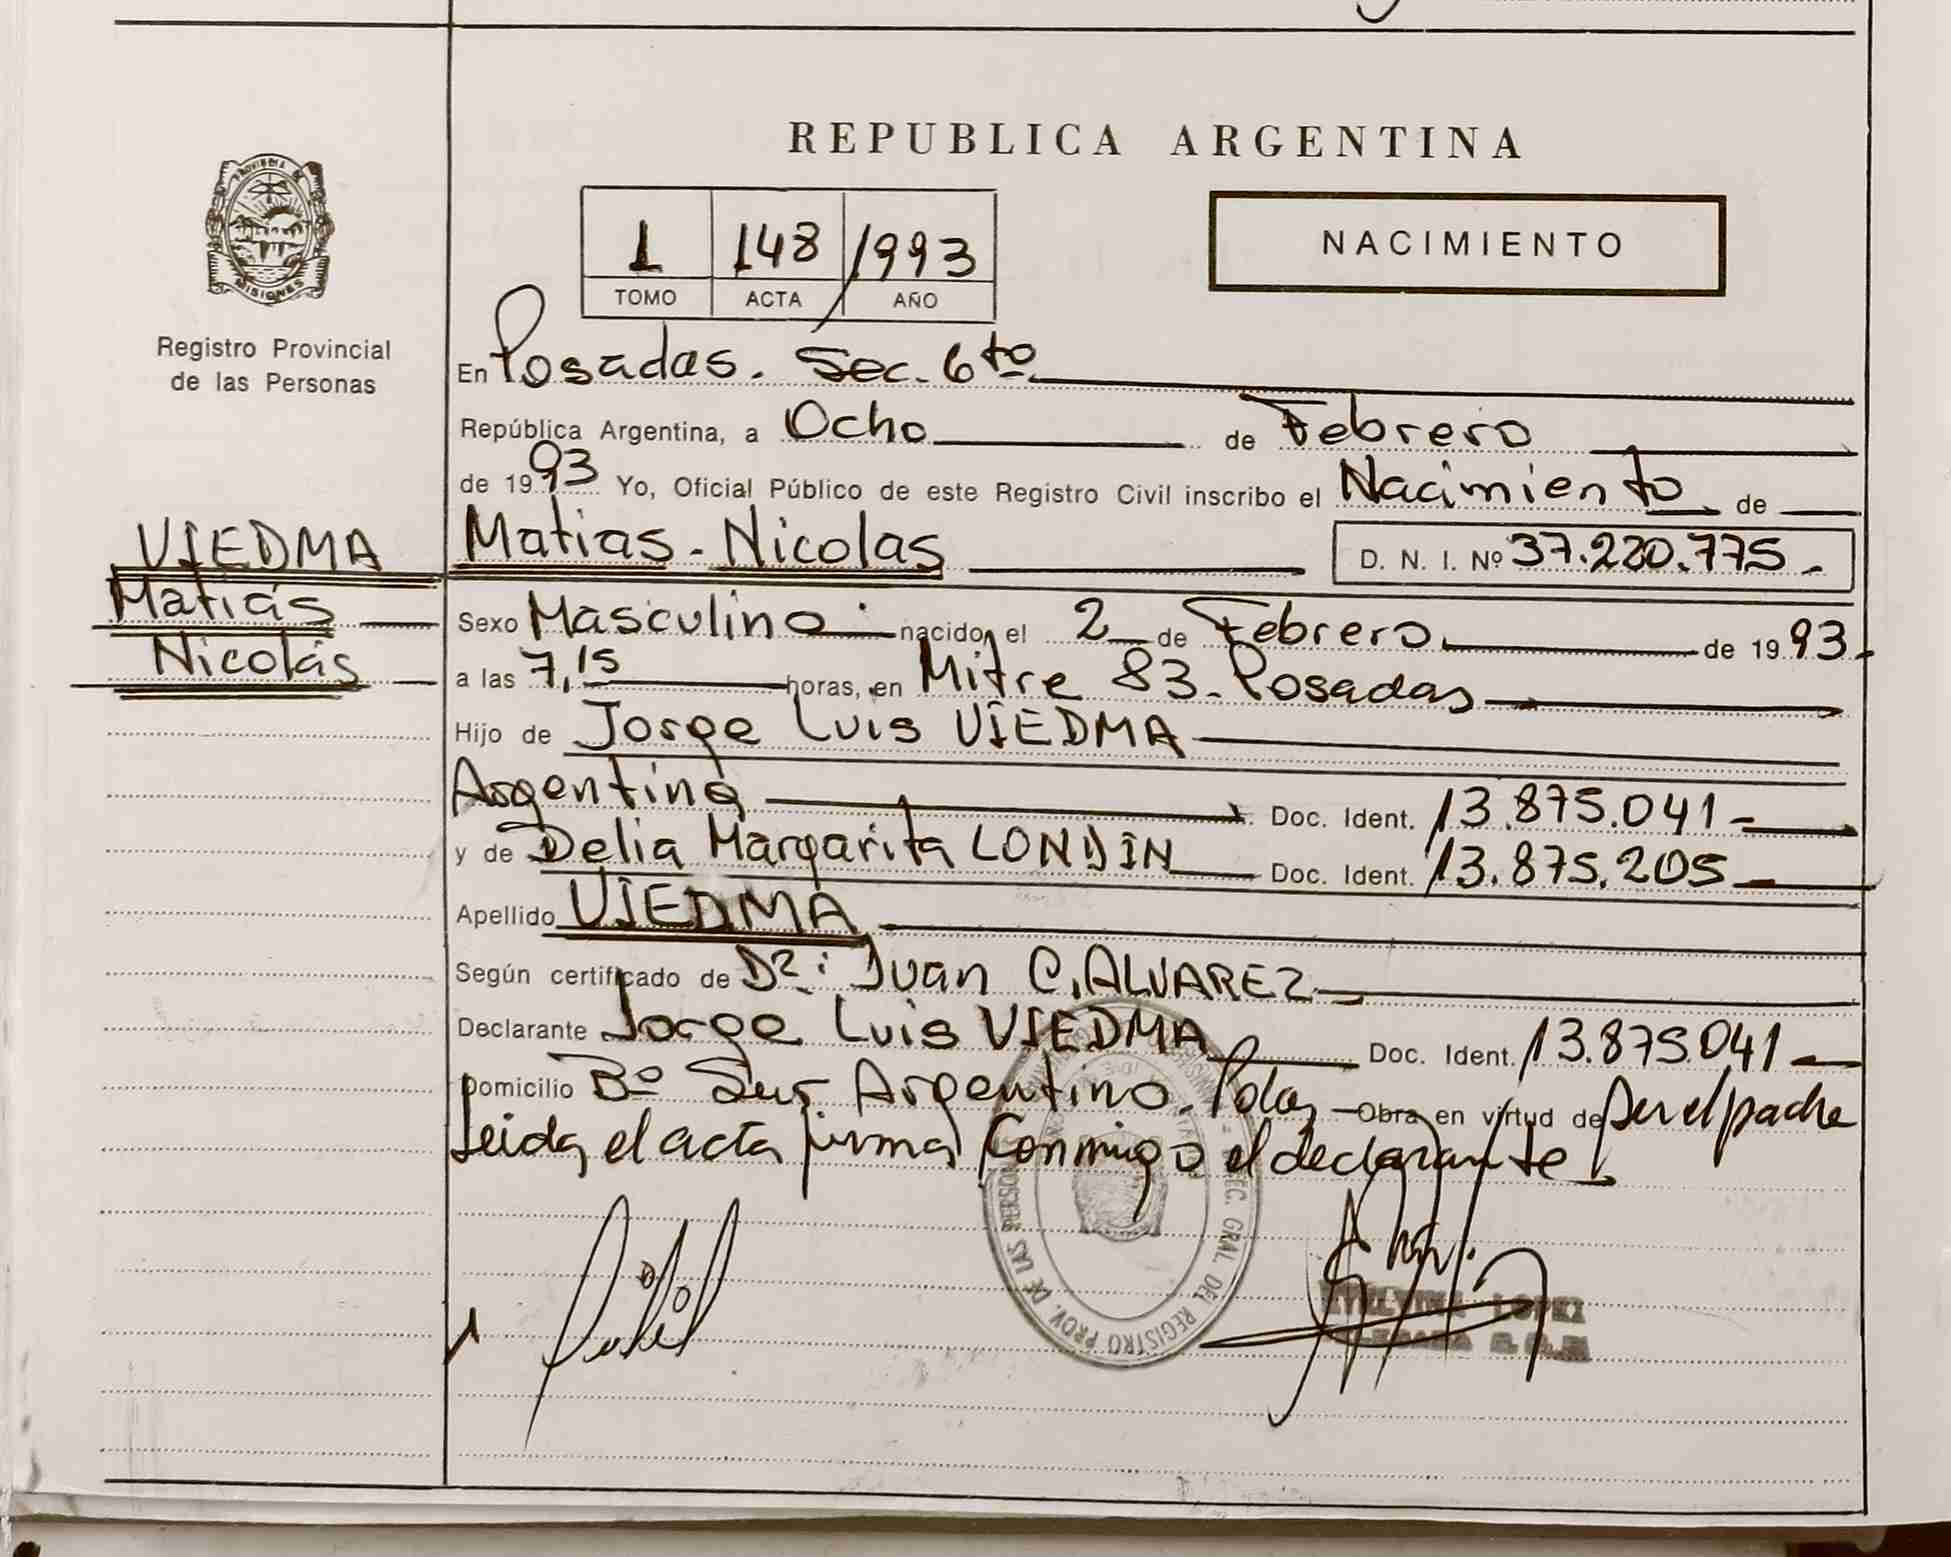 REPUBLICA ARGENTINA
PROVINCIA DE
MISIONES
Registro Provincial
de las Personas
1 148 1993
TOMO ACTA AÑO
NACIMIENTO
En Posadas. Sec. 6to
República Argentina, a Ocho de Febrero
de 1993 Yo, Oficial Público de este Registro Civil inscribo el Nacimiento de
VIEDMA
Matías
Nicolás
Matias - Nicolas D. N. I. Nº 37.220.775 -
Sexo Masculino nacido el 2 de Febrero de 1993
a las 7,15 horas, en Mitre 83. Posadas
Hijo de Jorge Luis VIEDMA
Argentina Doc. Ident. 13.875.041
y de Delia Margarita LONDIN Doc. Ident. 13.875.205
Apellido VIEDMA
Según certificado de Dr: Juan C. ALVAREZ
Declarante Jorge Luis VIEDMA Doc. Ident. 13.875.041
Domicilio Bº Sur Argentino. Pdas Obra en virtud de ser el padre
Leida el acta firma conmigo el declarante
GRAL. DEL REGISTRO PROV. DE LAS
LOPEZ